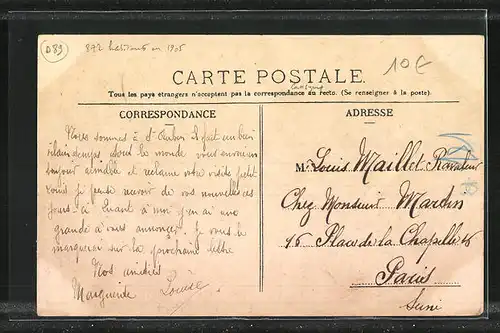 D89
872 habitants en 1905
10€
CARTE POSTALE.
Tous les pays étrangers n'acceptent pas la correspondance au recto. (Se renseigner à la poste).
CORRESPONDANCE
Nous sommes à St Aubin il fait un bien
vilain temps tout le monde vous envoie un
bonjour aimable et réclame votre visite petit
Louis je pense recevoir de vos nouvelles ces
jours-ci quant à moi j'en ai une
grande à vous annoncer. Je vous le
marquerai sur la prochaine lettre
Nos amitiés
Marguerite Louise
ADRESSE
M. Louis Maillet
Chez Monsieur Martin
16 Place de la Chapelle 16
Paris
Seine